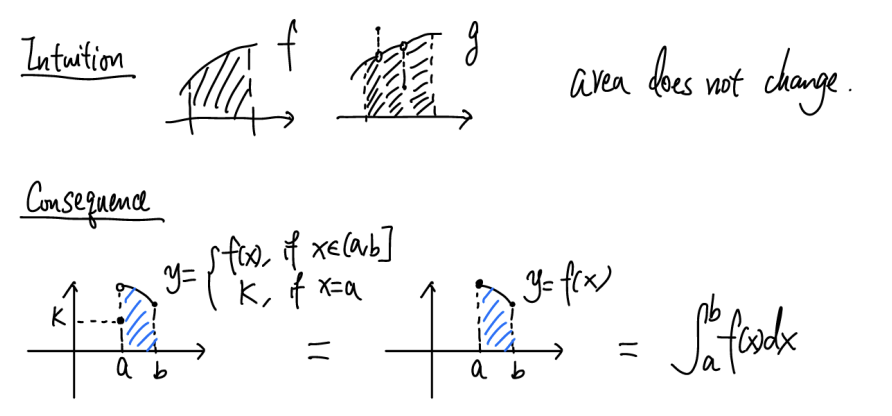 Intuition f g area does not change.
Consequence
y= { f(x), if x∈(a,b]
K, if x=a
K
a b
=
y=f(x)
a b
= ∫_a^b f(x)dx